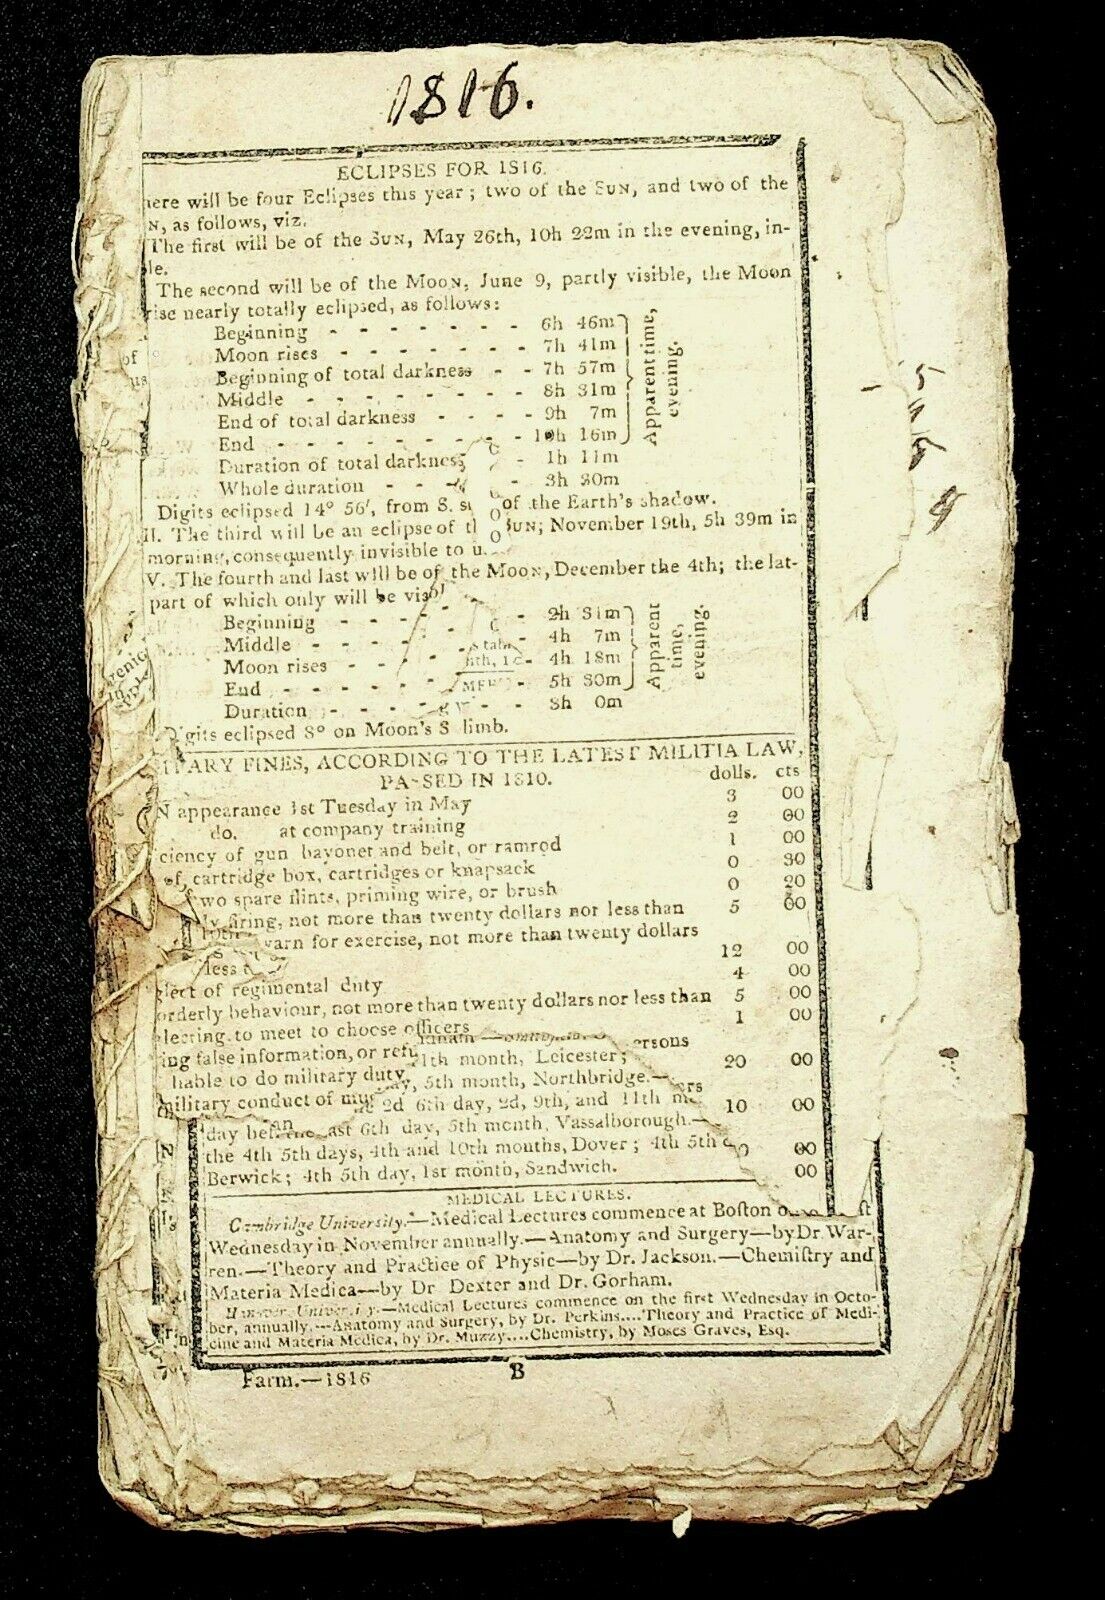 1816.
ECLIPSES FOR 1816.
here will be four Eclipses this year; two of the SUN, and two of the
N, as follows, viz.
The first will be of the SUN, May 26th, 10h 22m in the evening, in-
le.
The second will be of the MOON, June 9, partly visible, the Moon
rise nearly totally eclipsed, as follows:
Beginning - - - - - - - 6h 46m
Moon rises - - - - - - - 7h 41m
Beginning of total darkness - - 7h 57m
Middle - - - - - - - 8h 31m
End of total darkness - - - - 9h 7m
End - - - - - - - - 10h 16m
Apparent time, evening.
Duration of total darkness - 1h 11m
Whole duration - - - - 3h 30m
Digits eclipsed 14° 56', from S. s of the Earth's shadow.
II. The third will be an eclipse of t SUN; November 19th, 5h 39m in
morning, consequently invisible to u
V. The fourth and last will be of the MOON, December the 4th; the lat-
part of which only will be visi
Beginning - - - - - 2h 31m
Middle - - - - - 4h 7m
Moon rises - - - - 4h 18m
End - - - - - - 5h 30m
Apparent time, evening.
Duration - - - - - - 3h 0m
Digits eclipsed 8° on Moon's S limb.
ITARY FINES, ACCORDING TO THE LATEST MILITIA LAW,
PASSED IN 1810. dolls. cts
N appearance 1st Tuesday in May 3 00
do. at company training 2 00
ciency of gun bayonet and belt, or ramrod 1 00
of cartridge box, cartridges or knapsack 0 30
two spare flints, priming wire, or brush 0 20
ly firing, not more than twenty dollars nor less than 5 00
warn for exercise, not more than twenty dollars
less 12 00
glect of regimental duty 4 00
orderly behaviour, not more than twenty dollars nor less than 5 00
lecting to meet to choose officers 1 00
ing false information, or refu ersons
liable to do military duty 20 00
military conduct of mus ers
10 00
00
00
11th month, Leicester;
day, 5th month, Northbridge.—
2d 6th day, 2d, 9th, and 11th m
day before last 6th day, 5th month, Vassalborough.—
the 4th 5th days, 4th and 10th months, Dover; 4th 5th
Berwick; 4th 5th day, 1st month, Sandwich.
MEDICAL LECTURES.
Cambridge University.—Medical Lectures commence at Boston st
Wednesday in November annually.—Anatomy and Surgery—by Dr. War-
ren.—Theory and Practice of Physic—by Dr. Jackson.—Chemistry and
Materia Medica—by Dr Dexter and Dr. Gorham.
Hanover University.—Medical Lectures commence on the first Wednesday in Octo-
ber, annually.—Anatomy and Surgery, by Dr. Perkins....Theory and Practice of Medi-
cine and Materia Medica, by Dr. Muzzy....Chemistry, by Moses Graves, Esq.
Farm.—1816 B